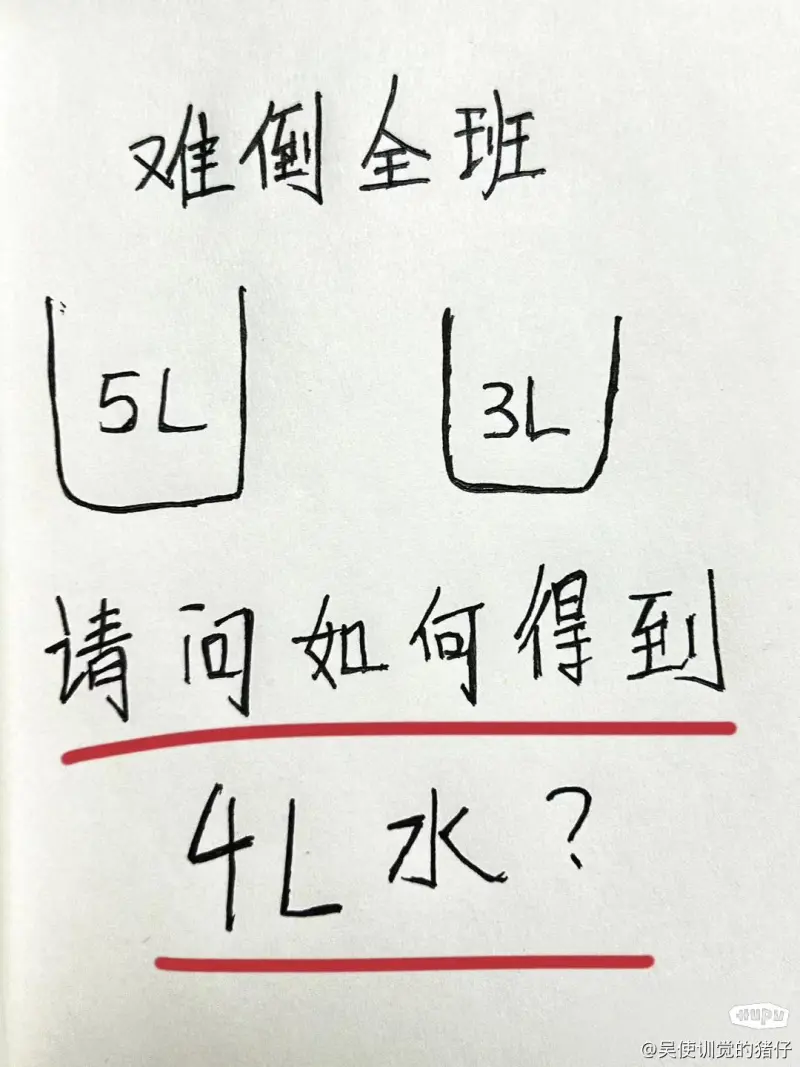 难倒全班
5L 3L
请问如何得到
4L水?
Hupu
@吴使训觉的猪仔